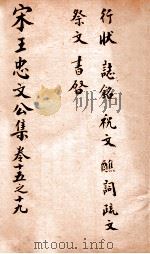 行狀 誌銘 祝文 醮詞 疏文
祭文 書啓
宋王忠文公集 卷十五之十九
www.toobook.com